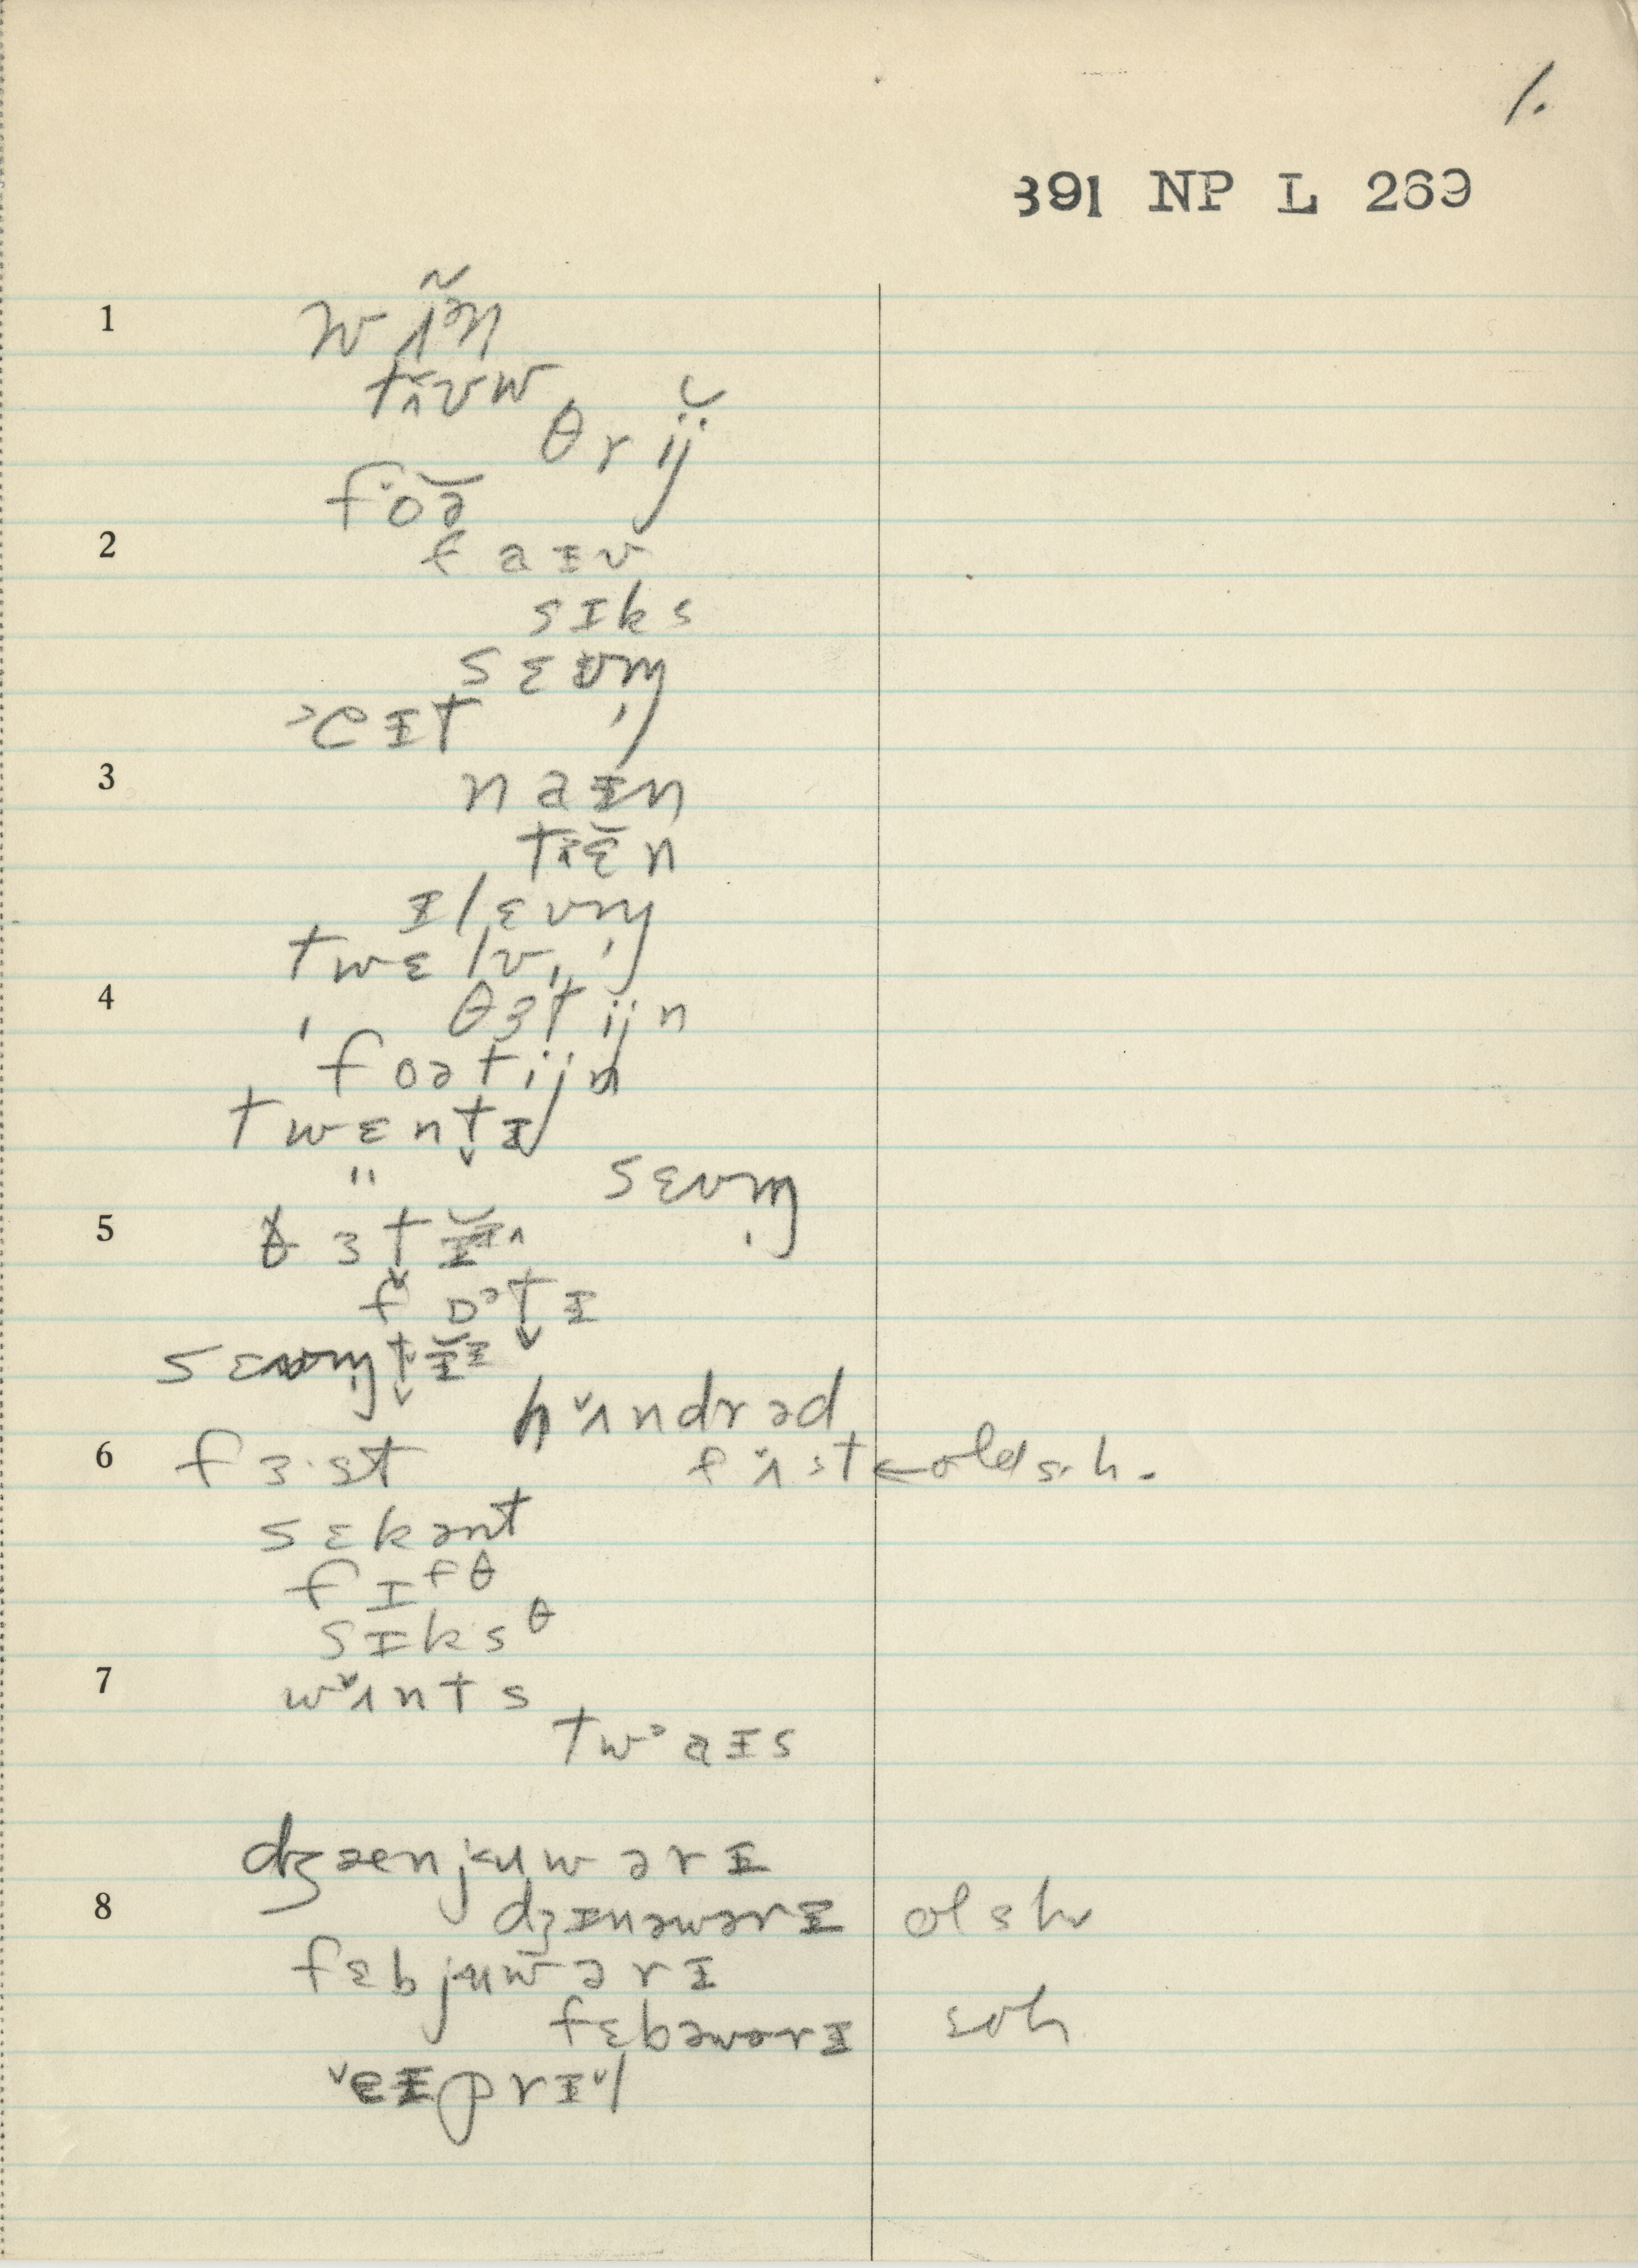 1.
391 NP L 269
1 wʌ̃ᵊn
tʌ̌ʊw
θrij̆
foə̆
2 faɪv
sɪks
sɛvm̩
˃eɪt
3 naɪn
tɛ̆n
ɪlɛvm̩
twɛlv
4 ˈθɜtijn
ˈfoətijn
twɛnt̬ɪ
" sɛvm̩
5 θɜt̬ɪ
fɒᵊt̬ɪ
sɛvm̩t̬ɪ
h˅ʌndrəd
6 fɜ·st f˅ʌ·st ← old s.h.
sɛkənt
fɪᶠᶿ
sɪksᶿ
7 w˅ʌnts
tw˃aɪs
dʒæenjuwərɪ
8 dʒɪnəwərɪ ol sh
fɛbjuwərɪ
fɛbəwərɪ soh
˅eɪprɪ˅l